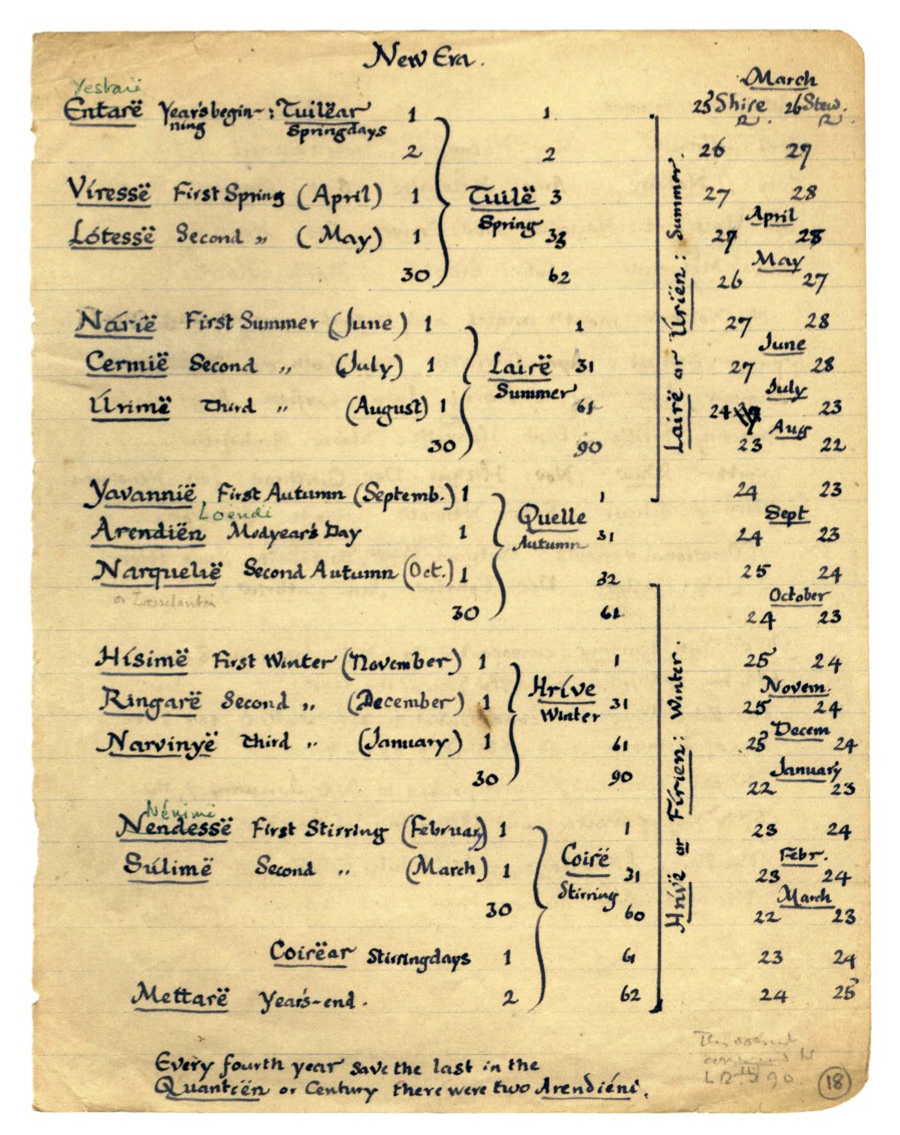 New Era.
March
Yestarië
Entarë Year's begin- : Tuilëar 1 1 25 Shire R. 26 Stew. R.
ning Springdays
2 2 26 27
Víressë First Spring (April) 1 Tuilë 3 27 28
Spring April
Lótessë Second „ (May) 1 33 27 28
May
30 62 26 27
Nárië First Summer (June) 1 1 27 28
June
Cermië Second „ (July) 1 Lairë 31 27 28
Summer July
Úrimë Third „ (August) 1 61 24 23
Aug
30 90 23 22
Lairë or Úriën: Summer.
Yavannië First Autumn (Septemb.) 1 1 24 23
Loendi Quelle Sept
Arendiën Midyear's Day 1 Autumn 31 24 23
Narquelië Second Autumn (Oct.) 1 32 25 24
or Lasselanta October
30 61 24 23
Hísimë First Winter (November) 1 1 25 24
Hríve Novem.
Ringarë Second „ (December) 1 Winter 31 25 24
Decem
Narvinyë Third „ (January) 1 61 25 24
January
30 90 22 23
Nénimë
Nendessë First Stirring (February) 1 1 23 24
Coirë Febr.
Súlimë Second „ (March) 1 31 23 24
Stirring March
30 60 22 23
Coirëar Stirringdays 1 61 23 24
Mettarë Year's-end. 2 62 24 25
Hrívë or Fíriën: Winter.
Every fourth year save the last in the
Quantiën or Century there were two Arendiéni.
18